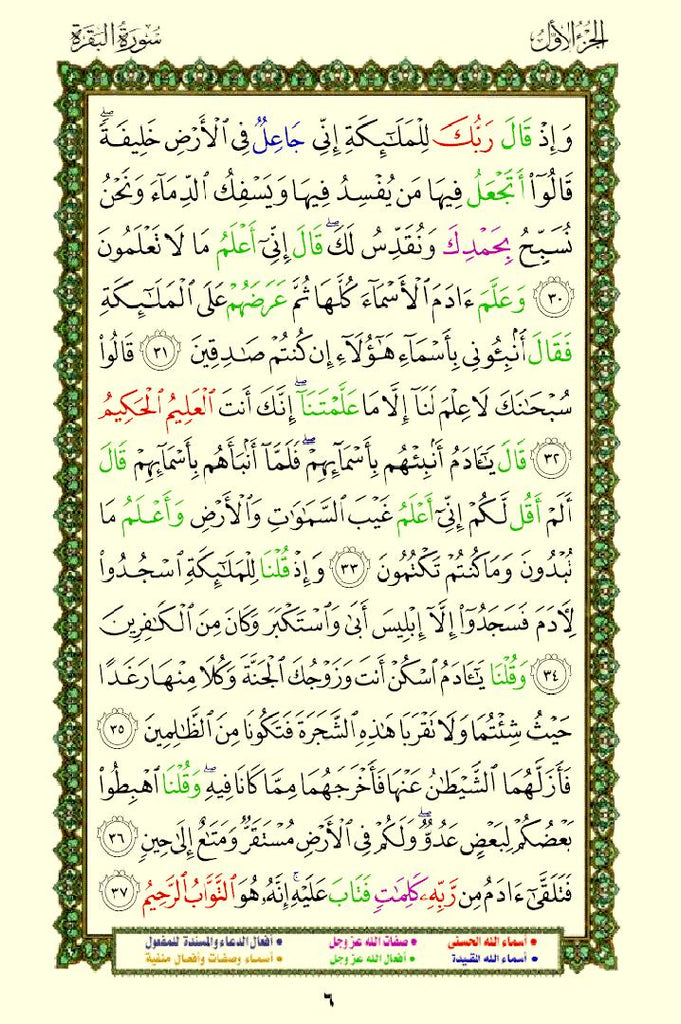 الجزء الأول
سورة البقرة
وَإِذْ قَالَ رَبُّكَ لِلْمَلَٰٓئِكَةِ إِنِّى جَاعِلٌ فِى ٱلْأَرْضِ خَلِيفَةً ۖ
قَالُوٓا۟ أَتَجْعَلُ فِيهَا مَن يُفْسِدُ فِيهَا وَيَسْفِكُ ٱلدِّمَآءَ وَنَحْنُ
نُسَبِّحُ بِحَمْدِكَ وَنُقَدِّسُ لَكَ ۖ قَالَ إِنِّىٓ أَعْلَمُ مَا لَا تَعْلَمُونَ
٣٠ وَعَلَّمَ ءَادَمَ ٱلْأَسْمَآءَ كُلَّهَا ثُمَّ عَرَضَهُمْ عَلَى ٱلْمَلَٰٓئِكَةِ
فَقَالَ أَنۢبِـُٔونِى بِأَسْمَآءِ هَٰٓؤُلَآءِ إِن كُنتُمْ صَٰدِقِينَ ٣١ قَالُوا۟
سُبْحَٰنَكَ لَا عِلْمَ لَنَآ إِلَّا مَا عَلَّمْتَنَآ ۖ إِنَّكَ أَنتَ ٱلْعَلِيمُ ٱلْحَكِيمُ
٣٢ قَالَ يَٰٓـَٔادَمُ أَنۢبِئْهُم بِأَسْمَآئِهِمْ ۖ فَلَمَّآ أَنۢبَأَهُم بِأَسْمَآئِهِمْ قَالَ
أَلَمْ أَقُل لَّكُمْ إِنِّىٓ أَعْلَمُ غَيْبَ ٱلسَّمَٰوَٰتِ وَٱلْأَرْضِ وَأَعْلَمُ مَا
تُبْدُونَ وَمَا كُنتُمْ تَكْتُمُونَ ٣٣ وَإِذْ قُلْنَا لِلْمَلَٰٓئِكَةِ ٱسْجُدُوا۟
لِءَادَمَ فَسَجَدُوٓا۟ إِلَّآ إِبْلِيسَ أَبَىٰ وَٱسْتَكْبَرَ وَكَانَ مِنَ ٱلْكَٰفِرِينَ
٣٤ وَقُلْنَا يَٰٓـَٔادَمُ ٱسْكُنْ أَنتَ وَزَوْجُكَ ٱلْجَنَّةَ وَكُلَا مِنْهَا رَغَدًا
حَيْثُ شِئْتُمَا وَلَا تَقْرَبَا هَٰذِهِ ٱلشَّجَرَةَ فَتَكُونَا مِنَ ٱلظَّٰلِمِينَ ٣٥
فَأَزَلَّهُمَا ٱلشَّيْطَٰنُ عَنْهَا فَأَخْرَجَهُمَا مِمَّا كَانَا فِيهِ ۖ وَقُلْنَا ٱهْبِطُوا۟
بَعْضُكُمْ لِبَعْضٍ عَدُوٌّ ۖ وَلَكُمْ فِى ٱلْأَرْضِ مُسْتَقَرٌّ وَمَتَٰعٌ إِلَىٰ حِينٍ ٣٦
فَتَلَقَّىٰٓ ءَادَمُ مِن رَّبِّهِۦ كَلِمَٰتٍ فَتَابَ عَلَيْهِ ۚ إِنَّهُۥ هُوَ ٱلتَّوَّابُ ٱلرَّحِيمُ ٣٧
• أسماء الله الحسنى • صفات الله عز وجل • أفعال الدعاء والمسندة للمفعول
• أسماء الله المقيدة • أفعال الله عز وجل • أسماء وصفات وأفعال منفية
٦